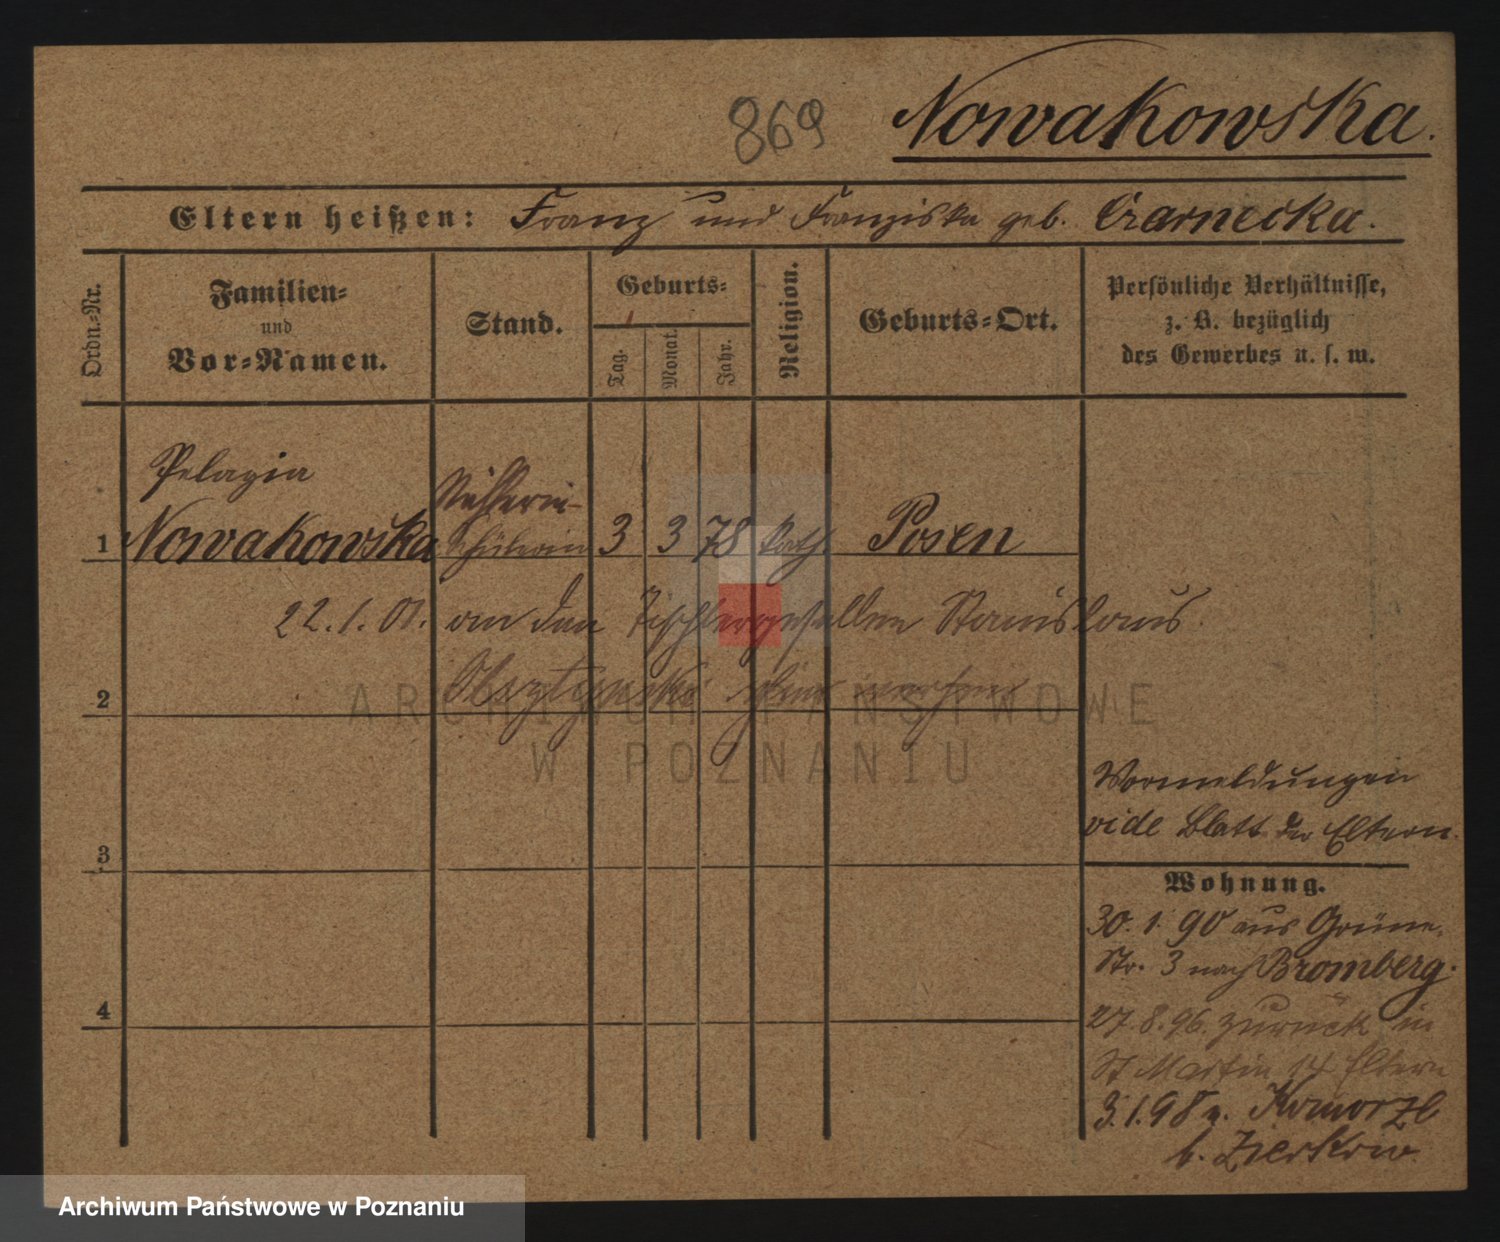 869 Nowakowska.
Eltern heißen: Franz und Franziska geb. Czarnecka.
Ordn.-Nr.
Familien-
und
Vor-Namen.
Stand.
Geburts-
Tag.
Monat.
Jahr.
Religion.
Geburts-Ort.
Persönliche Verhältnisse,
z. B. bezüglich
des Gewerbes u. s. w.
Pelagia
1 Nowakowska schülerin 3 3 78 kath Posen
22.1.01. an den Tischlergesellen Stanislaus
2
3
4
Vormeldungen
vide Blatt der Eltern.
Wohnung.
30.1.90 aus Grüne-
Str. 3 nach Bromberg.
27.8.96. zurück in
St Martin 14 Eltern
3.1.98 n.
b. Zierkow.
ARCHIWUM PAŃSTWOWE
W POZNANIU
Archiwum Państwowe w Poznaniu